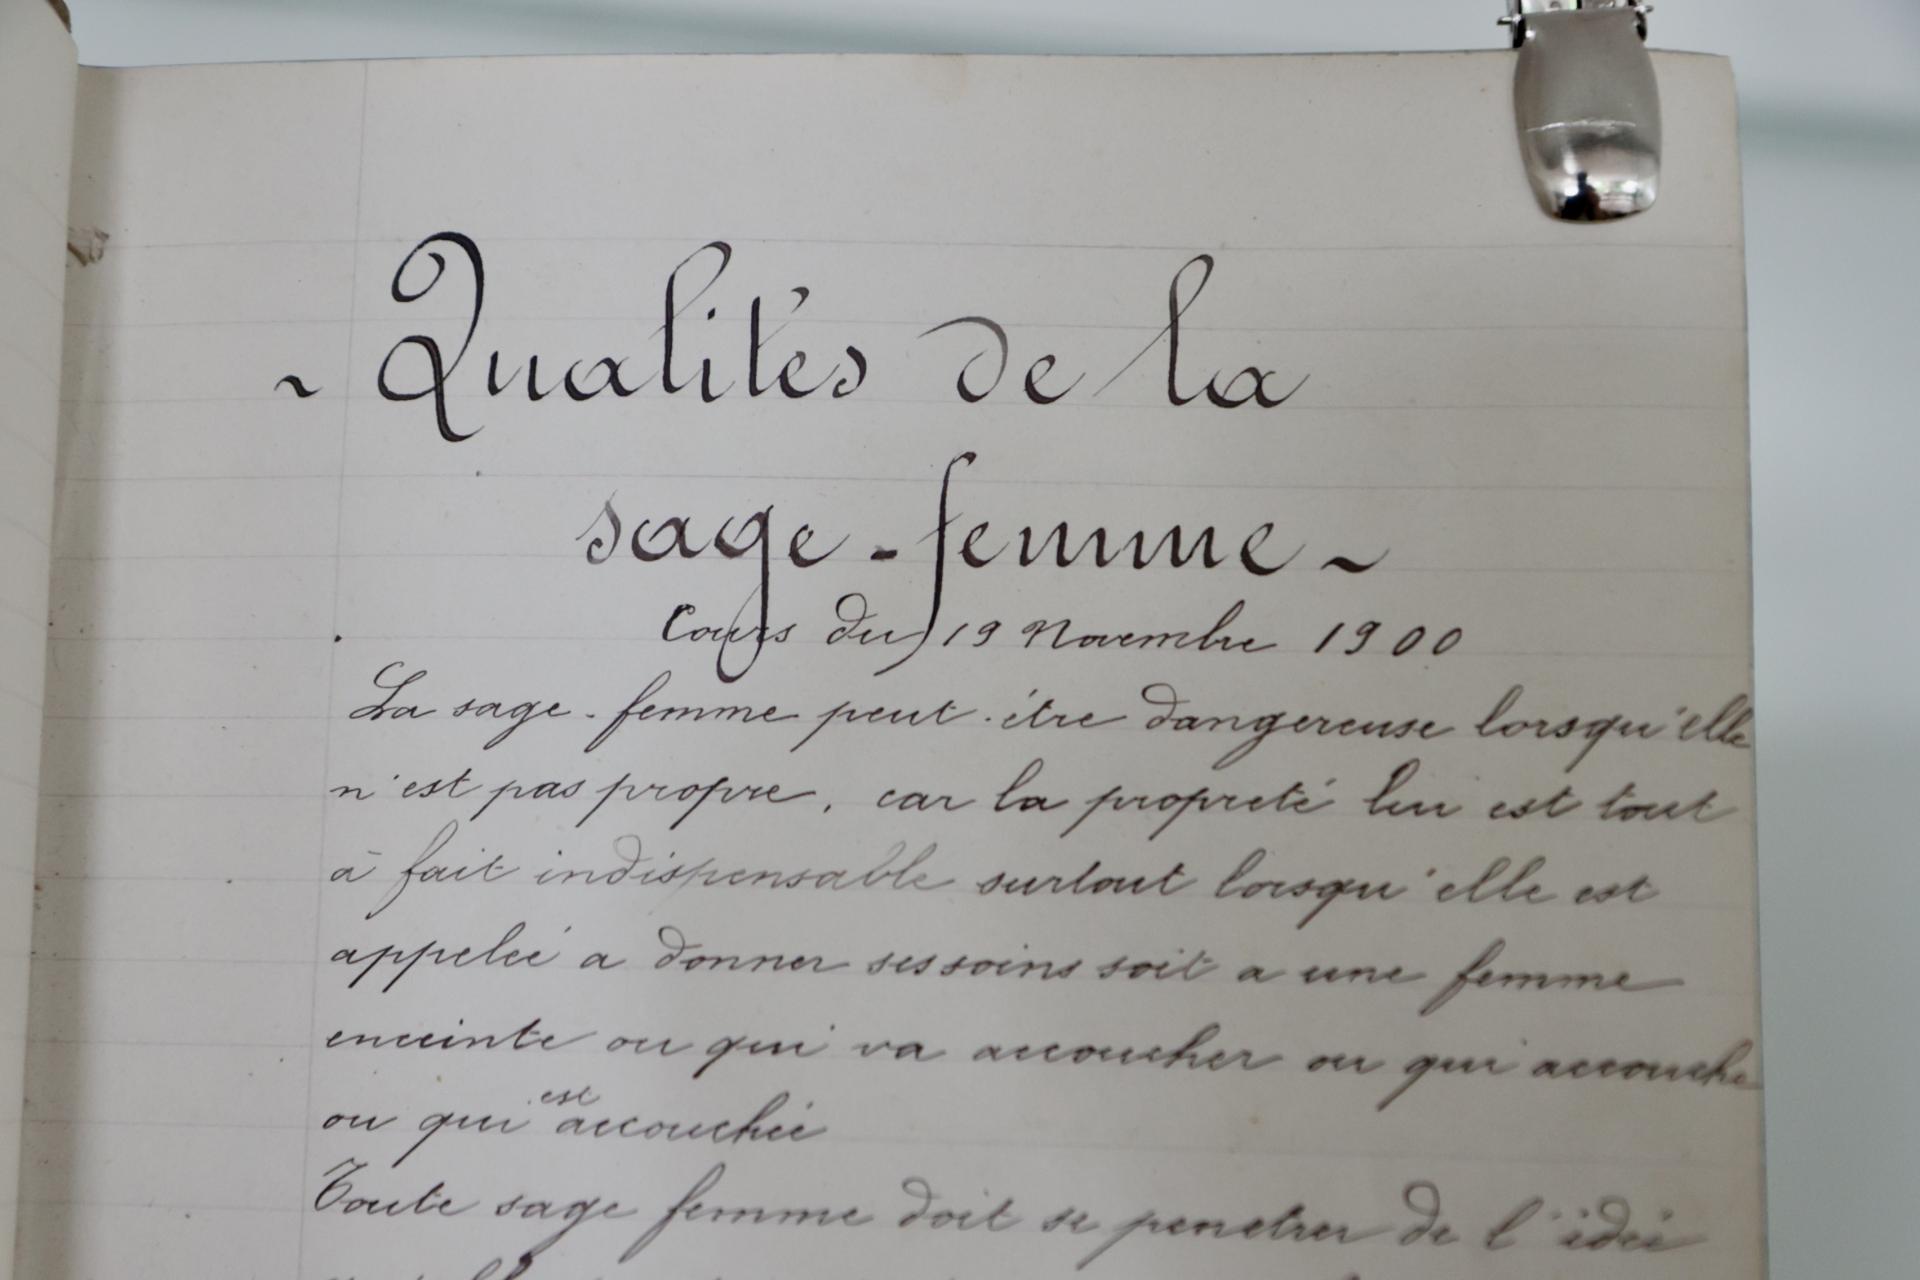 ~ Qualités de la
sage-femme ~
Cours du 19 Novembre 1900
La sage-femme peut-être dangereuse lorsqu'elle
n'est pas propre, car la propreté lui est tout
à fait indispensable surtout lorsqu'elle est
appelée a donner ses soins soit a une femme
enceinte ou qui va accoucher ou qui accouche
ou qui est accouchée
Toute sage femme doit se penetrer de l'idée